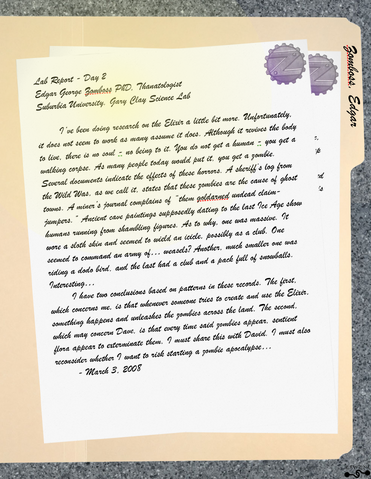 Lab Report - Day 2
Edgar George Zomboss PhD, Thanatologist
Suburbia University, Gary Clay Science Lab
I've been doing research on the Elixir a little bit more. Unfortunately,
it does not seem to work as many assume it does. Although it revives the body
to live, there is no soul - no being to it. You do not get a human - you get a
walking corpse. As many people today would put it, you get a zombie.
Several documents indicate the effects of these horrors. A sheriff's log from
the Wild Was, as we call it, states that these zombies are the cause of ghost
towns. A miner's journal complains of "them goldarned undead claim-
jumpers." Ancient cave paintings supposedly dating to the last Ice Age show
humans running from shambling figures. As to why, one was massive. It
wore a sloth skin and seemed to wield an icicle, possibly as a club. One
seemed to command an army of... weasels? Another, much smaller one was
riding a dodo bird, and the last had a club and a pack full of snowballs.
Interesting...
I have two conclusions based on patterns in these records. The first,
which concerns me, is that whenever someone tries to create and use the Elixir,
something happens and unleashes the zombies across the land. The second,
which may concern Dave, is that every time said zombies appear, sentient
flora appear to exterminate them. I must share this with David. I must also
reconsider whether I want to risk starting a zombie apocalypse...
- March 3, 2008
Zomboss, Edgar